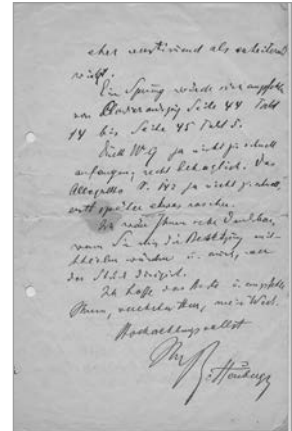 eher verstimmend als erheiternd
wirkt.
Ein Sprung würde sich empfehlen
von Klavierauszug Seite 44 Takt
14 bis Seite 45 Takt 5.
Duett Nº 9 ja nicht zu schnell
anfangen, recht behaglich. Das
Allegretto S. 142 ja nicht zu schnell,
erst später etwas rascher.
Ich wäre Ihnen sehr dankbar,
wenn Sie mir die Besetzung mit-
theilen würden u. auch, wer
das Stück dirigirt.
Ich hoffe das Beste u. empfehle
Ihnen, verehrter Herr, mein Werk.
Hochachtungsvollst
Ihr R. Heuberger